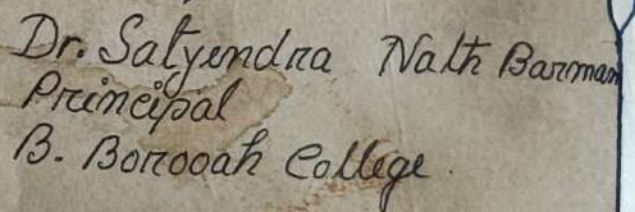 Dr. Satyendra Nath Barman
Principal
B. Borooah College.